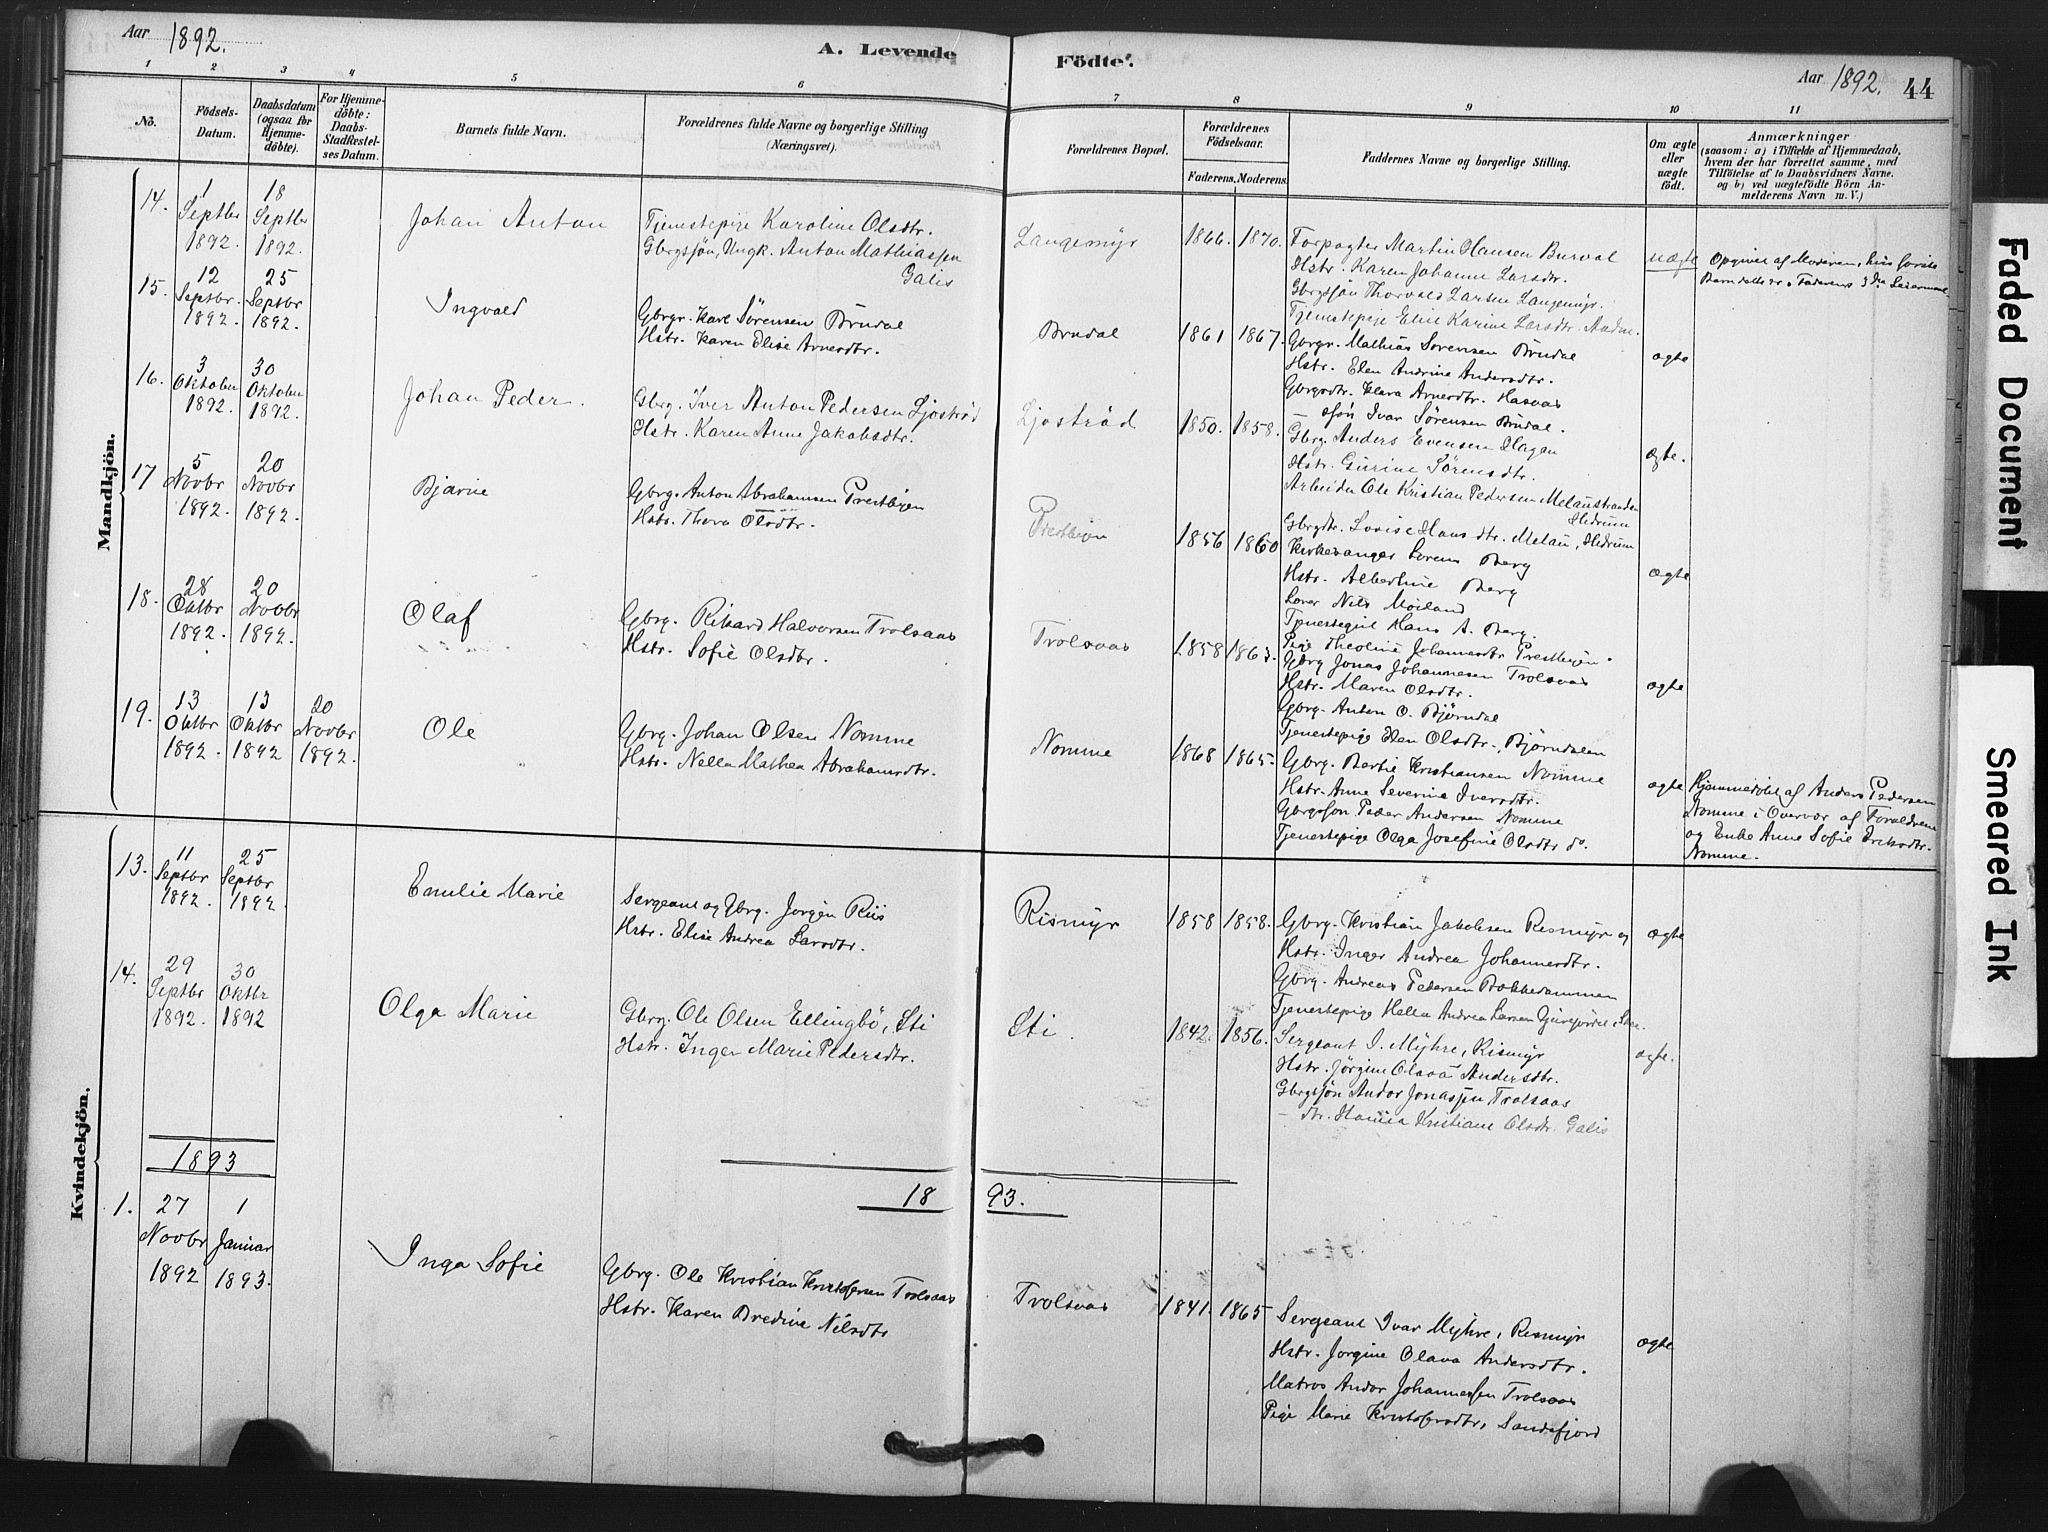 Aar 1892.
A. Levende
Födte.
Aar 1892.
44
1
2
3
4
5
6
7
8
9
10
11
No.
Födsels-
Datum.
Daabsdatum
(ogsaa for
Hjemme-
döbte).
For Hjemme-
döbte:
Daabs-
Stadfæstel-
ses Datum.
Barnets fulde Navn.
Forældrenes fulde Navne og borgerlige Stilling
(Næringsvei).
Forældrenes Bopæl.
Forældrenes
Födselsaar.
Faderens. Moderens.
Faddernes Navne og borgerlige Stilling.
Om ægte
eller
uægte
födt.
Anmærkninger
(saasom: a) i Tilfælde af Hjemmedaab,
hvem der har forrettet samme, med
Tilföielse af to Daabsvidners Navne.
og b) ved uægtefödte Börn An-
melderens Navn m. V.)
Mandkjön.
14.
1
Septbr
1892.
18
Septbr
1892.
Johan Anton
Tjenestepige Karoline Olsdtr.
Gbrgssön, Ungk. Anton Mathiassen
Galis
Langemyr
1866. 1870.
Forpagter Martin Hansen Burval
Hstr. Karen Johanne Larsdtr.
Gbrgssön Thorvald Larsen Langemyr.
Tjenestepige Elise Karine Larsdtr.
uægte
Opgivet af Moderen, hvis første
Barn dette er. Faderens 3die Leiermaal
15.
12
Septbr.
1892.
25
Septbr
1892.
Ingvald
Gbrgr. Karl Sørensen Brudal
Hstr. Karen Elise Arnesdtr.
Brudal
1861 1867.
Gbrgr. Mathias Sørensen Brudal
Hstr. Elen Andrine Andersdtr.
Gbrgrdtr. Klara Arnesdtr. Hasaas
— ssön Ivar Sørensen Brudal.
ægte
16.
3
Oktober
1892.
30
Oktober
1892.
Johan Peder.
Gbrg. Iver Anton Pedersen Ljostrød
Hstr. Karen Anne Jakobsdtr.
Ljostrød
1850. 1858.
Gbrg. Anders Evensen Hagen
Hstr. Gurine Sørensdtr.
Arbeider Ole Kristian Pedersen Melaustranden
Hedrum
Gbrgdtr. Lovise Hansdtr. Melau, Hedrum
ægte.
17
5
Novbr
1892.
20
Novbr
1892.
Bjarne
Gbrg. Anton Abrahamsen Prestbyen
Hstr. Thora Olsdtr.
Prestbyen
1856 1860
Kirkesanger Lorens Berg
Hstr. Albertine Berg
Lærer Nils Moiland
Hans A. Berg.
Pige Theoline Johannesdtr Prestbyen.
ægte
18.
28
Oktbr
1892.
20
Novbr
1892.
Olaf
Gbrg. Rikard Halvorsen Trolsaas
Hstr. Sofie Olsdtr.
Trolsaas
1858 1863.
Gbrg Jonas Johannesen Trolsaas
Hstr. Maren Olsdtr.
Gbrg. Anton O. Bjørndal
Tjenestepige Elen Olsdtr., Bjørndalen
ægte
19.
13
Oktbr
1892.
13
Oktbr
1892
20
Novbr
1892.
Ole
Gbrg. Johan Olsen Nomme
Hstr. Nella Mathea Abrahamsdtr.
Nomme
1868 1865.
Gbrg. Bertie Kristiansen Nomme
Hstr. Anne Severine Iversdtr.
Gbrgssøn Peder Andersen Nomme
Tjenestepige Olga Josefine Olsdtr do.
ægte
Hjemmedøbt af Anders Pedersen
Nomme i Overvær af Forældrene
og Enke Anne Sofie Eriksdtr.
Nomme.
Kvindekjön.
13.
11
Septbr
1892.
25
Septbr
1892.
Emilie Marie
Sergeant og Gbrg. Jørgen Riis
Hstr. Elise Andrea Larsdtr.
Rismyr
1858 1858.
Gbrg. Kristian Jakobsen Rismyr og
Hstr. Inger Andrea Johannesdtr.
Gbrg. Andreas Pedersen Bokkedammen
Tjenestepige Hella Andrea Larsen
ægte
14.
29
Septbr
1892.
30
Oktbr
1892
Olga Marie
Gbrg. Ole Olsen Ellingbö, Sti
Hstr. Inger Marie Pedersdtr.
Sti.
1842. 1856.
Sergeant I. Myhre, Rismyr
Hstr. Jørgine Olava Andersdtr.
Gbrgssjön Andor Jonassen Trolsaas
— dtr. Hanna Kristiane Olsdtr. Galis
ægte.
1893
18 93.
1.
27
Novbr
1892
1
Januar
1893.
Inga Sofie
Gbrg. Ole Kristian Kristofersen Trolsaas
Hstr. Karen Bredine Nilsdtr
Trolsaas
1841. 1865
Sergeant Ivar Myhre, Rismyr
Hstr. Jørgine Olava Andersdtr.
Matros Andor Johannessen Trolsaas
Pige Marie Kristofersdtr, Sandefjord
ægte
Faded Document
Smeared Ink